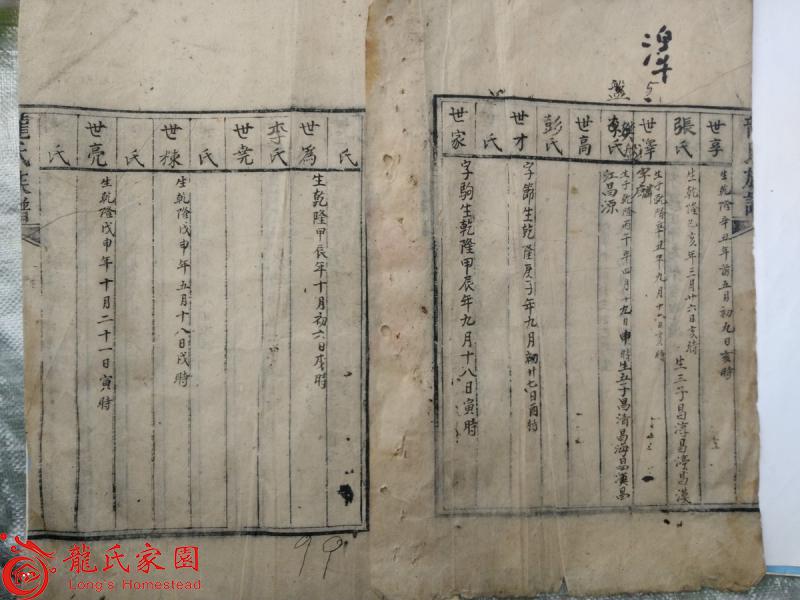 世享 生乾隆辛丑年前五月初九日亥時
張氏 生乾隆己亥年三月廿六日亥時 生三子昌淳昌
世澤 生于乾隆辛丑年九月十六日亥時
李氏 生于乾隆丙午年四月十九日申時生五子昌清昌海昌漢昌
江昌源
世高
彭氏
世才 字節生乾隆庚子年九月初廿七日酉時
氏
世家 字駒生乾隆甲辰年九月十八日寅時
龍氏族譜
氏
世為 生乾隆甲辰年十月初六日 時
李氏
世堯
氏
世棟 生乾隆戊申年五月十八日戌時
氏
世亮 生乾隆戊申年十月二十一日寅時
氏
龍氏族譜
99
龍氏家園
Long's Homestead